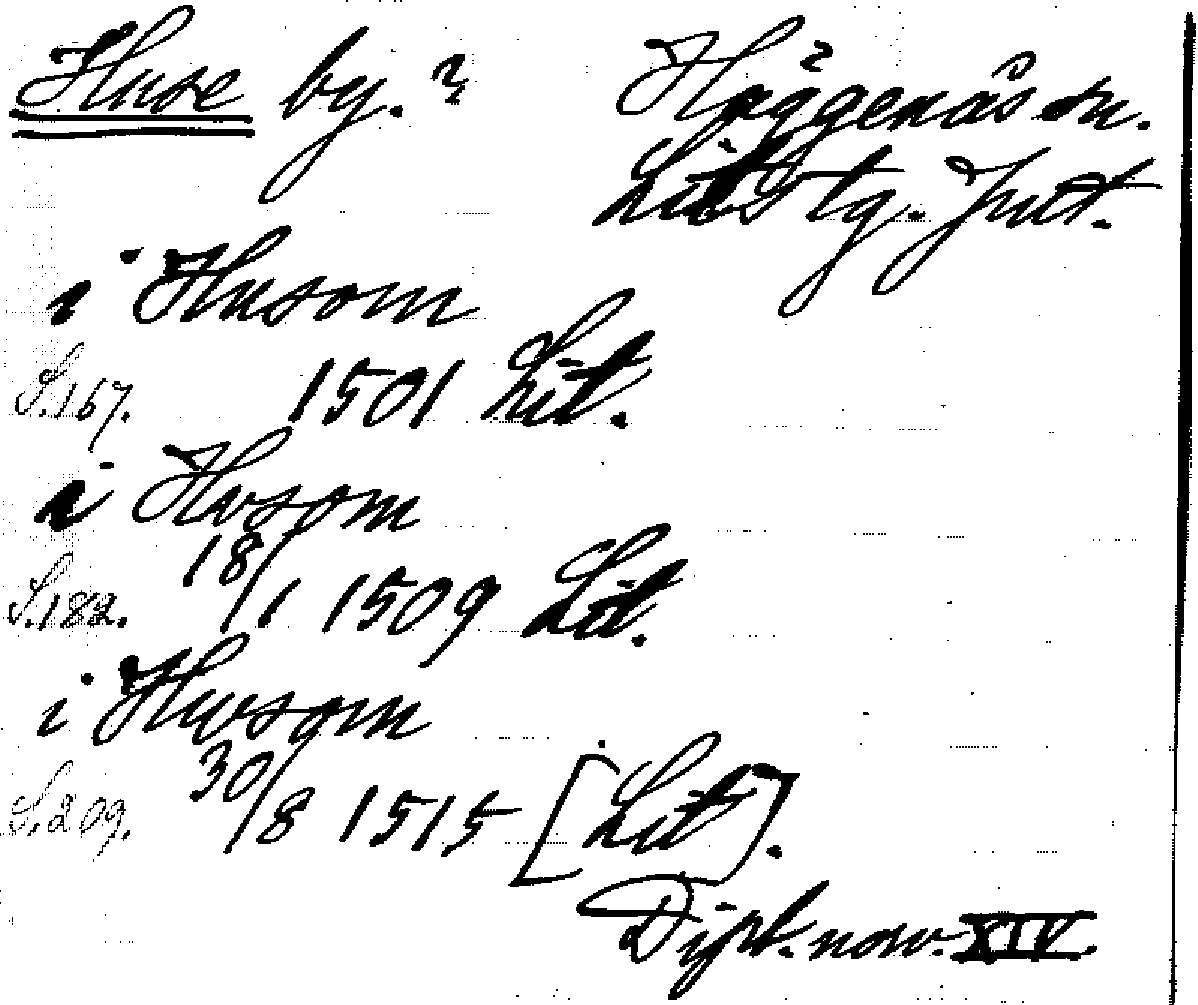 Huse by.? Häggenås sn.
Lits tg. Jmt.
i Husom
S.167. 1501 Lit.
i Hvsom
S.182. 18/1 1509 Lit.
i Hwsom
S.209. 30/8 1515 [Lit].
Dipl. norv. XIV.